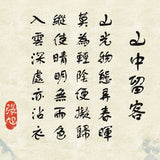 山中留客
山光物態弄春暉
莫為輕陰便擬歸
縱使晴明無雨色
入雲深處亦沾衣
張旭